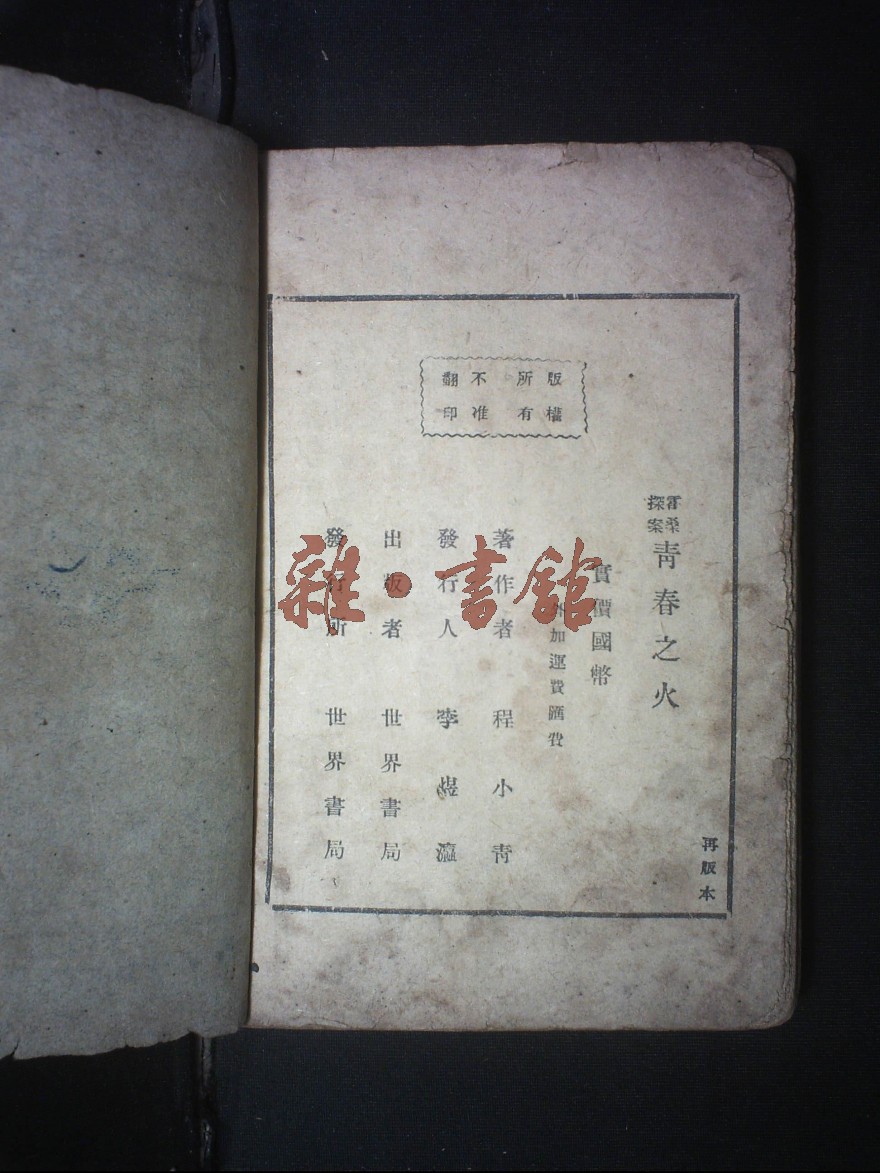 版權
所有
不准
翻印
霍桑
探案
青春之火
實價國幣
外加運費匯費
著作者 程小青
發行人 李煜瀛
出版者 世界書局
發行所 世界書局
再版本
雜·書館